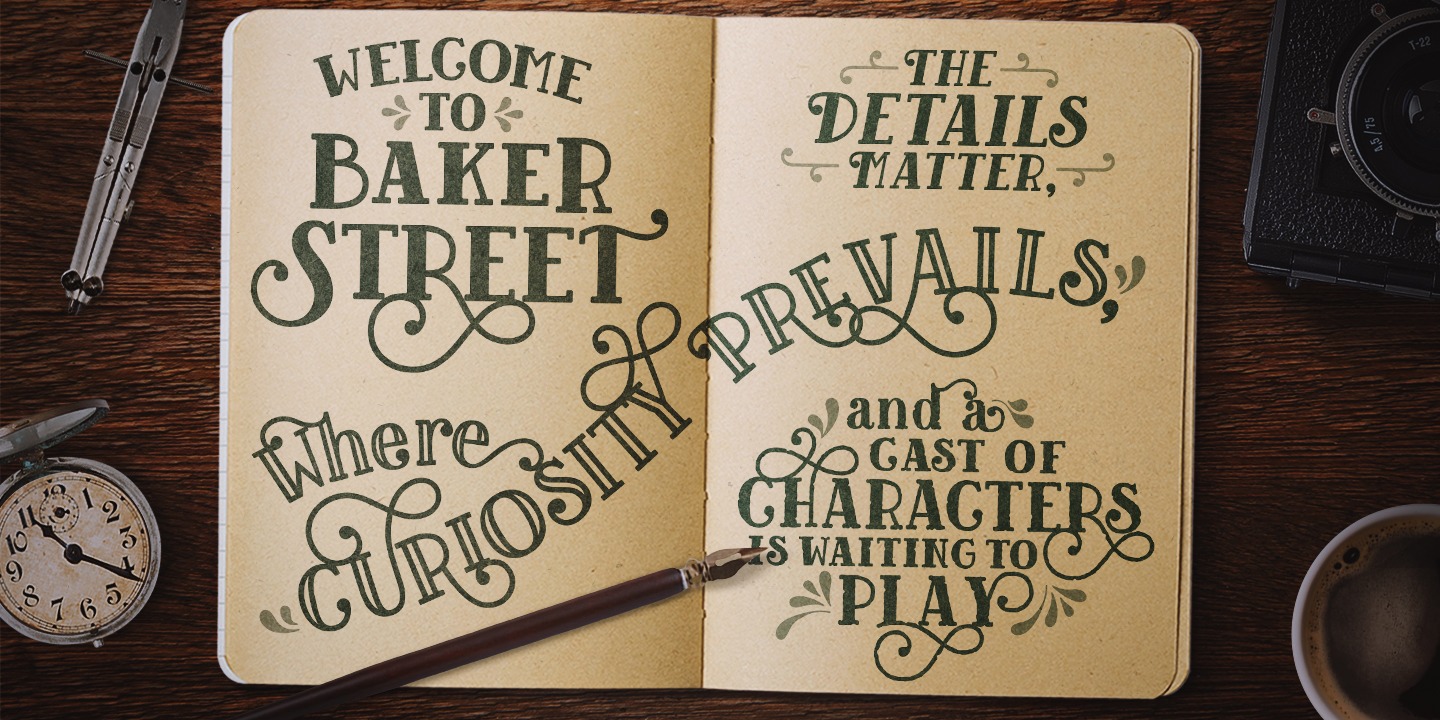 WELCOME
TO
BAKER
STREET
THE
DETAILS
MATTER,
Where
CURIOSITY PREVAILS,
and a
CAST OF
CHARACTERS
IS WAITING TO
PLAY
T-22
4,5/75
1
2
3
4
5
6
7
8
9
10